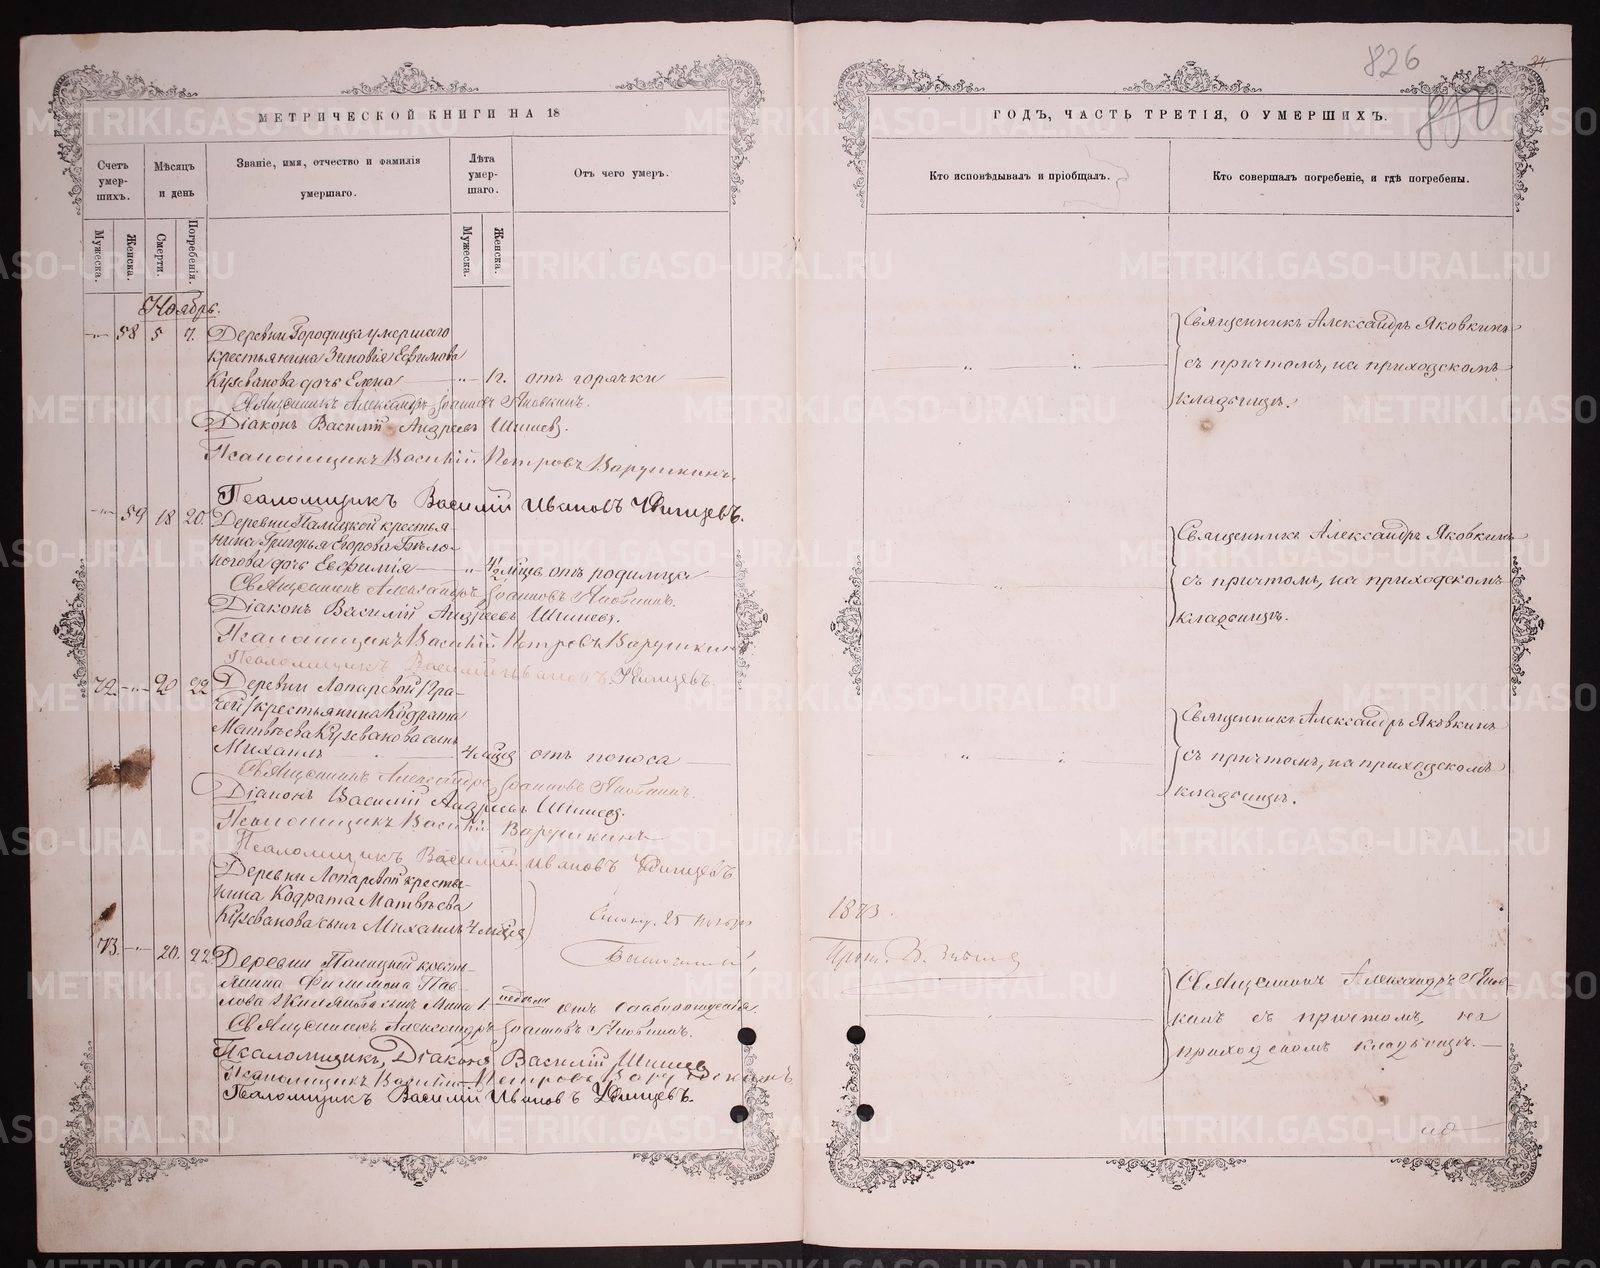 826
880
МЕТРИЧЕСКОЙ КНИГИ НА 18
ГОДЪ, ЧАСТЬ ТРЕТІЯ, О УМЕРШИХЪ.
Счетъ умер-шихъ.
Мѣсяцъ и день
Званіе, имя, отчество и фамилія умершаго.
Лѣта умер-шаго.
Отъ чего умеръ.
Кто исповѣдывалъ и пріобщалъ.
Кто совершалъ погребеніе, и гдѣ погребены.
Мужеска.
Женска.
Смерти.
Погребенія.
Мужеска.
Женска.
Ноябрь.
58 5 7. Деревни Городища умершаго
крестьянина Зиновія Ефимова
Кузеванова дочь Елена 1 г. отъ горячки
Священникъ Александръ Іоанновъ Яковкинъ.
Діаконъ Василій Андреевъ Шишевъ.
Псаломщикъ Василій Петровъ Варушкинъ.
Псаломщикъ Василій Ивановъ
Священникъ Александръ Яковкинъ
съ причтомъ, на приходскомъ
кладбищѣ.
59 18 20. Деревни Палицкой крестья-
нина Григорья Егорова Бѣло-
ногова дочь Евфимія отъ родимца
Священникъ Александръ Іоанновъ Яковкинъ.
Діаконъ Василій Андреевъ Шишевъ.
Псаломщикъ Василій Петровъ Варушкинъ
Псаломщикъ Василій Ивановъ
Священникъ Александръ Яковкинъ
съ причтомъ, на приходскомъ
кладбищѣ.
72. 20 22 Деревни Лопаревой
крестьянина Кодрата
Матвѣева Кузеванова сынъ
Михаилъ 4 мѣсяца отъ поноса
Священникъ Александръ Іоанновъ Яковкинъ.
Діаконъ Василій Андреевъ Шишевъ.
Псаломщикъ Василій Варушкинъ
Псаломщикъ Василій Ивановъ
Священникъ Александръ Яковкинъ
съ причтомъ, на приходскомъ
кладбищѣ.
Деревни Лопаревой крестья-
нина Кодрата Матвѣева
Кузеванова сынъ Михаилъ 4 мѣсяца
1873.
73. 20. 22. Деревни Палицкой кресть-
янина Филимона Пав-
лова сынъ недѣли отъ слаборожденія.
Священникъ Александръ Іоанновъ Яковкинъ.
Псаломщикъ, Діаконъ Василій Шишевъ
Псаломщикъ Василій Петровъ Варушкинъ
Псаломщикъ Василій Ивановъ
Священникъ Александръ Яков-
кинъ съ причтомъ, на
приходскомъ кладбищѣ.
METRIKI.GASO-URAL.RU